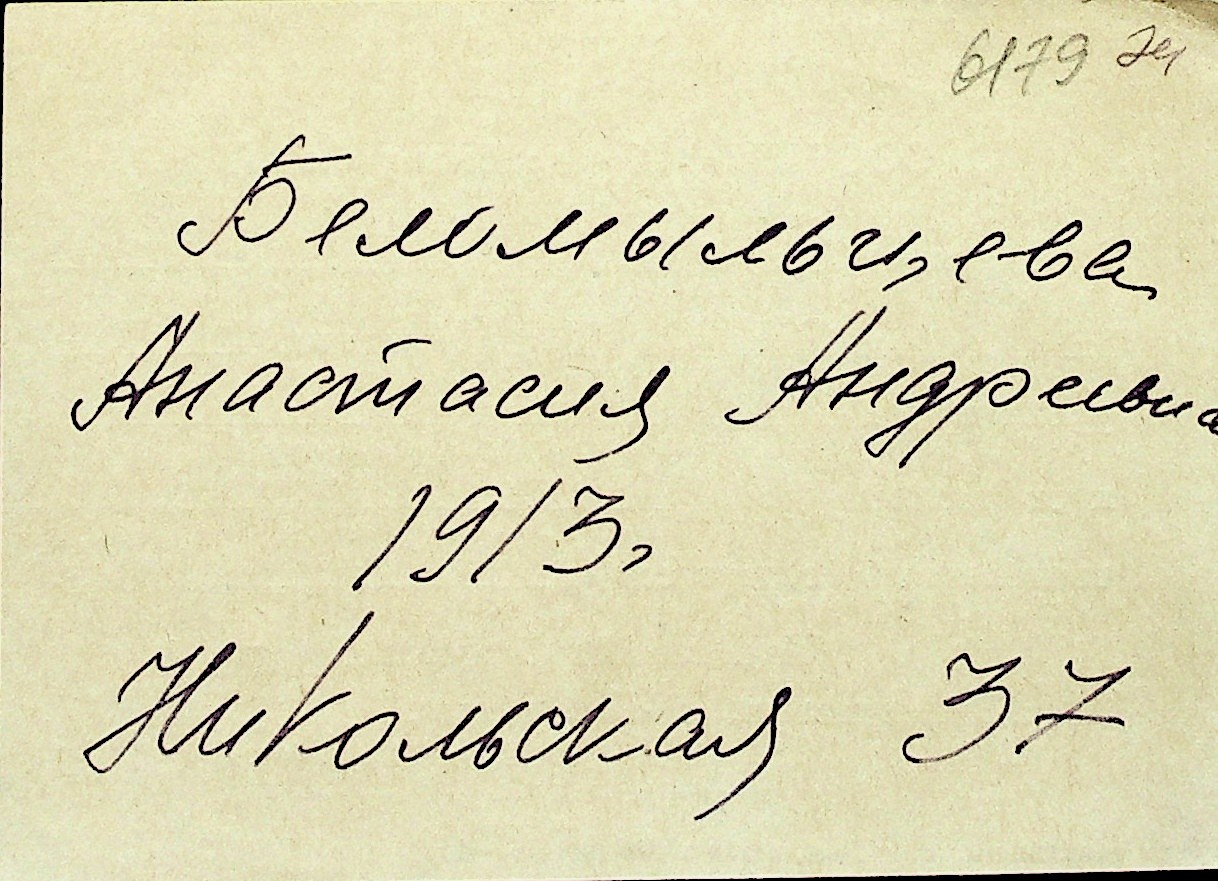 6179
Беломыльцева
Анастасия Андреевна
1913,
Никольская 37